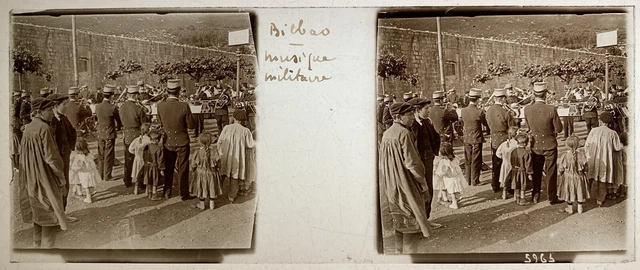 Bilbao
—
musique
militaire
5965